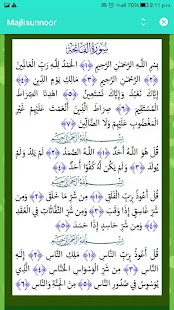 2:11 p.m.
Majlisunnoor
سُورَةُ الْفَاتِحَة
بِسْمِ اللَّهِ الرَّحْمَٰنِ الرَّحِيمِ ﴿١﴾ الْحَمْدُ لِلَّهِ رَبِّ الْعَالَمِينَ
﴿٢﴾ الرَّحْمَٰنِ الرَّحِيمِ ﴿٣﴾ مَالِكِ يَوْمِ الدِّينِ ﴿٤﴾ إِيَّاكَ
نَعْبُدُ وَإِيَّاكَ نَسْتَعِينُ ﴿٥﴾ اهْدِنَا الصِّرَاطَ
الْمُسْتَقِيمَ ﴿٦﴾ صِرَاطَ الَّذِينَ أَنْعَمْتَ عَلَيْهِمْ غَيْرِ
الْمَغْضُوبِ عَلَيْهِمْ وَلَا الضَّالِّينَ ﴿٧﴾
بِسْمِ اللَّهِ الرَّحْمَٰنِ الرَّحِيمِ
قُلْ هُوَ اللَّهُ أَحَدٌ ﴿١﴾ اللَّهُ الصَّمَدُ ﴿٢﴾ لَمْ يَلِدْ وَلَمْ
يُولَدْ ﴿٣﴾ وَلَمْ يَكُنْ لَهُ كُفُوًا أَحَدٌ ﴿٤﴾
بِسْمِ اللَّهِ الرَّحْمَٰنِ الرَّحِيمِ
قُلْ أَعُوذُ بِرَبِّ الْفَلَقِ ﴿١﴾ مِنْ شَرِّ مَا خَلَقَ ﴿٢﴾ وَمِنْ
شَرِّ غَاسِقٍ إِذَا وَقَبَ ﴿٣﴾ وَمِنْ شَرِّ النَّفَّاثَاتِ فِي الْعُقَدِ
﴿٤﴾ وَمِنْ شَرِّ حَاسِدٍ إِذَا حَسَدَ ﴿٥﴾
بِسْمِ اللَّهِ الرَّحْمَٰنِ الرَّحِيمِ
قُلْ أَعُوذُ بِرَبِّ النَّاسِ ﴿١﴾ مَلِكِ النَّاسِ ﴿٢﴾ إِلَٰهِ
النَّاسِ ﴿٣﴾ مِنْ شَرِّ الْوَسْوَاسِ الْخَنَّاسِ ﴿٤﴾ الَّذِي
يُوَسْوِسُ فِي صُدُورِ النَّاسِ ﴿٥﴾ مِنَ الْجِنَّةِ وَالنَّاسِ ﴿٦﴾